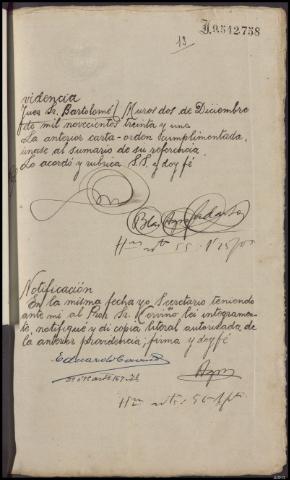 J.9512758
13
videncia
Juez Sr. Bartolomé / Muros dos de Diciembre
de mil novecientos treinta y uno
La anterior carta-orden cumplimentada,
únase al sumario de su referencia.
Lo acordó y rubrica S.S. doy fé
Notificación
En la misma fecha yo Secretario teniendo
ante mí al Sr. Coviño, leí integramen-
te, notifiqué y dí copia literal autorizada de
la anterior providencia; firma y doy fé
Eduardo